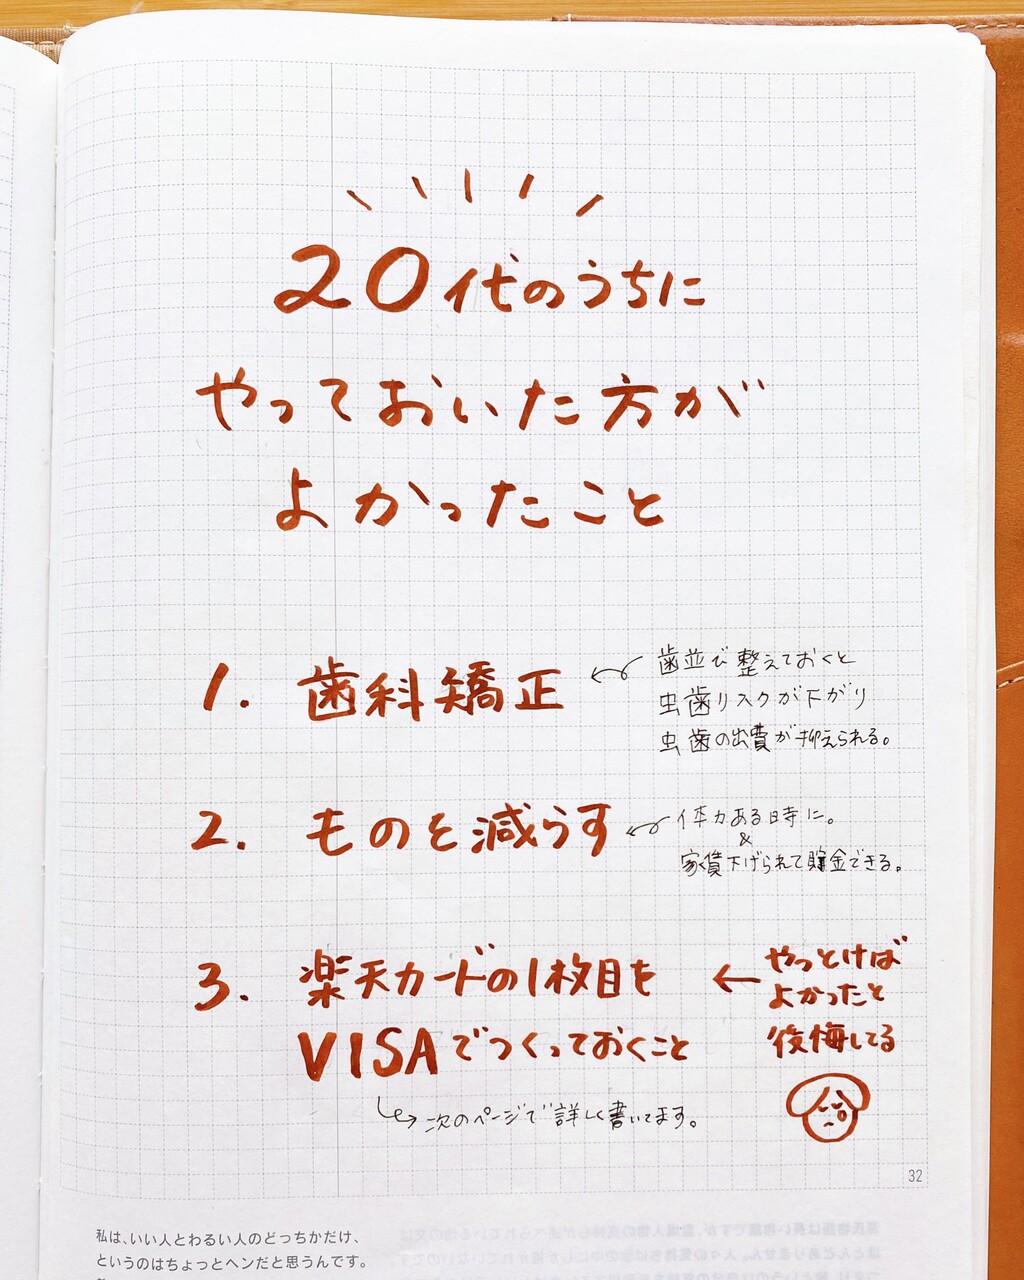 20代のうちに
やっておいた方が
よかったこと
1. 歯科矯正
歯並び整えておくと
虫歯リスクが下がり
虫歯の出費が抑えられる。
2. ものを減らす
体力ある時に。
&
家賃下げられて貯金できる。
3. 楽天カードの1枚目を
VISAでつくっておくこと
やっとけば
よかったと
後悔してる
次のページで詳しく書いてます。
32
私は、いい人とわるい人のどっちかだけ、
というのはちょっとヘンだと思うんです。